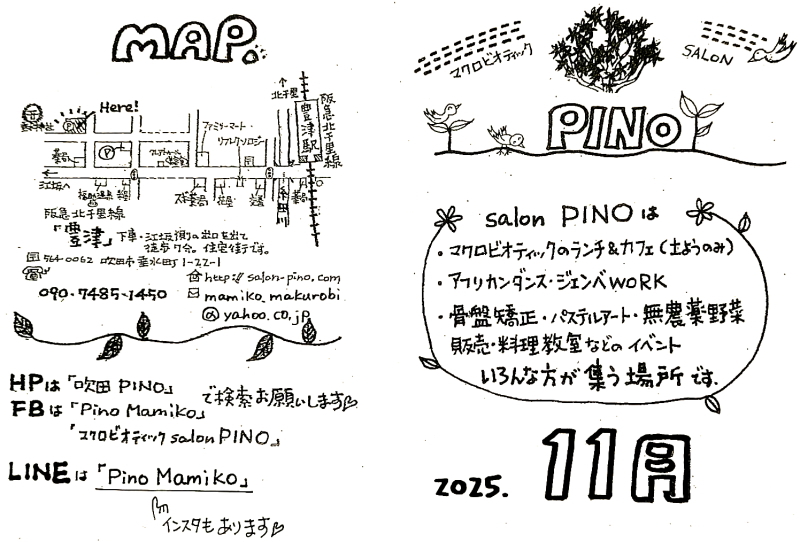 MAP.
Here!
北千里
阪急北千里線
豊津駅
ファミリーマート・
リフレクソロジー
薬局
江坂へ
スギ薬局
糸田川
阪急北千里線
「豊津」下車・江坂側の出口を出て
徒歩7分。住宅街です。
564-0062 吹田市垂水町1-22-1
090-7485-1450
http://salon-pino.com
mamiko_makurobi
@yahoo.co.jp
HPは「吹田 PINO」
FBは「Pino Mamiko」
で検索お願いします
「マクロビオティック salon PINO」
LINEは「Pino Mamiko」
インスタもあります
マクロビオティック
SALON
PINO
salon PINOは
・マクロビオティックのランチ&カフェ(土ようのみ)
・アフリカンダンス・ジェンベWORK
・骨盤矯正・パステルアート・無農薬野菜
販売・料理教室などのイベント
いろんな方が集う場所です。
2025. 11月